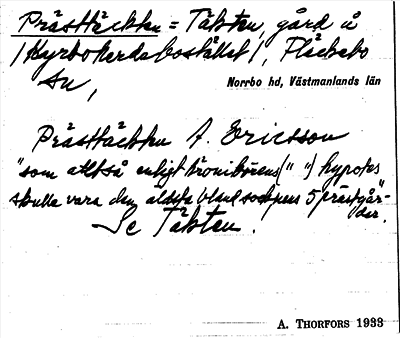 Prästtäckten = Täkten, gård å
/Kyrkoherdebostället/, Fläckebo
sn,
Norrbo hd, Västmanlands län
Prästtäckten A. Ericsson
"som alltså enligt (" ") hypotes
skulle vara den äldsta bland socknens 5 prästgår-
dar.
Se Täkten.
A. THORFORS 1933